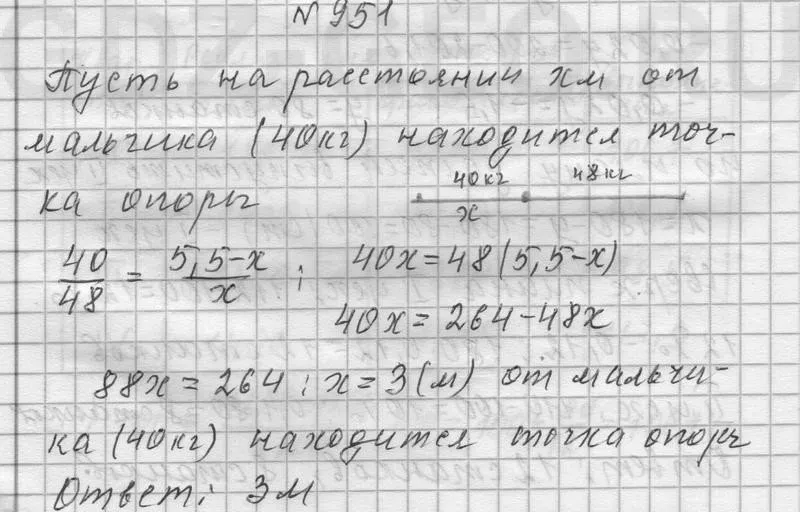 N 951
Пусть на расстоянии xм от
мальчика (40кг) находится точ-
ка опоры
40кг 48кг
x
40/48 = 5,5-x/x ; 40x=48(5,5-x)
40x=264-48x
88x=264; x=3(м) от мальчи-
ка (40кг) находится точка опоры
Ответ: 3м